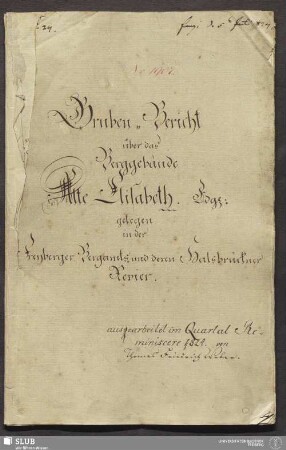 No 1067.
Gruben-Bericht
über das
Berggebäude
Alte Elisabeth. Fdgr:
gelegen
in der
Freyberger Bergamts und deren Halsbrückner
Revier.
ausgearbeitet im Quartal Re-
miniscere 1824. von
Friedrich
SLUB
Wir führen Wissen.